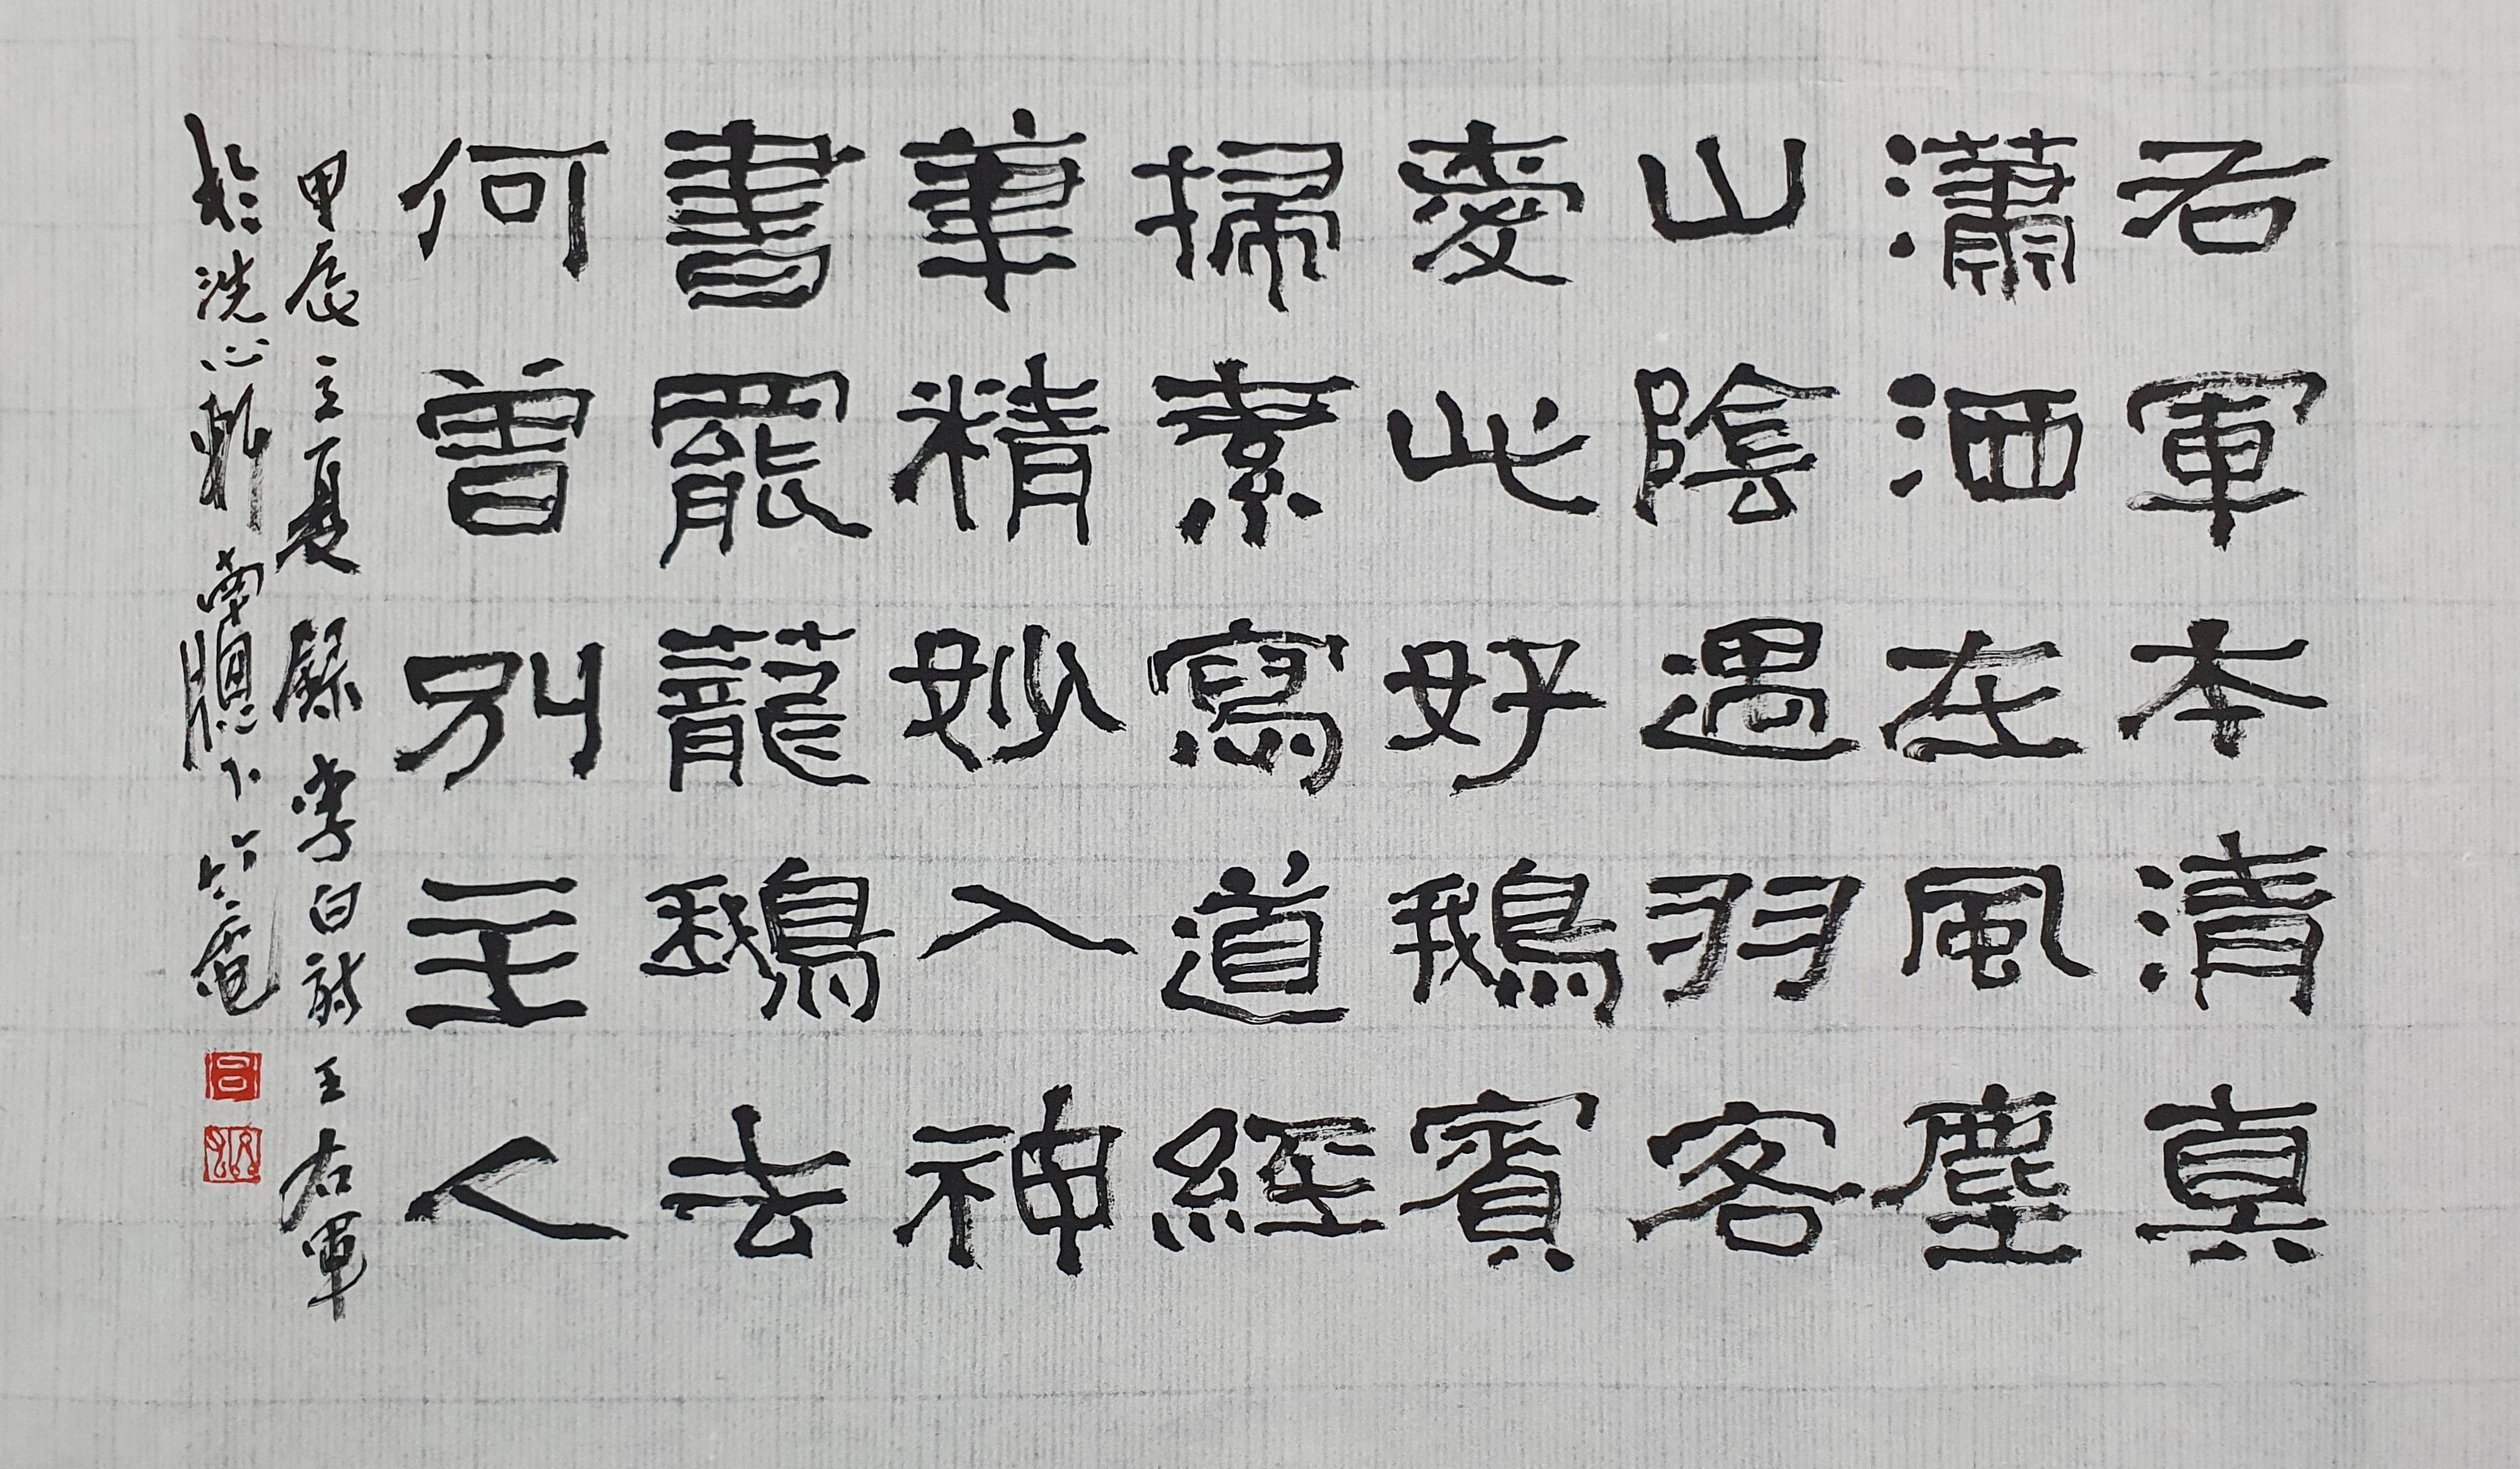 右軍本清真
瀟洒在風塵
山陰遇羽客
愛此好鵝賓
掃素寫道經
筆精妙入神
書罷籠鵝去
何曾別主人
甲辰立夏錄李白詩王右軍
於洗心軒南牕下